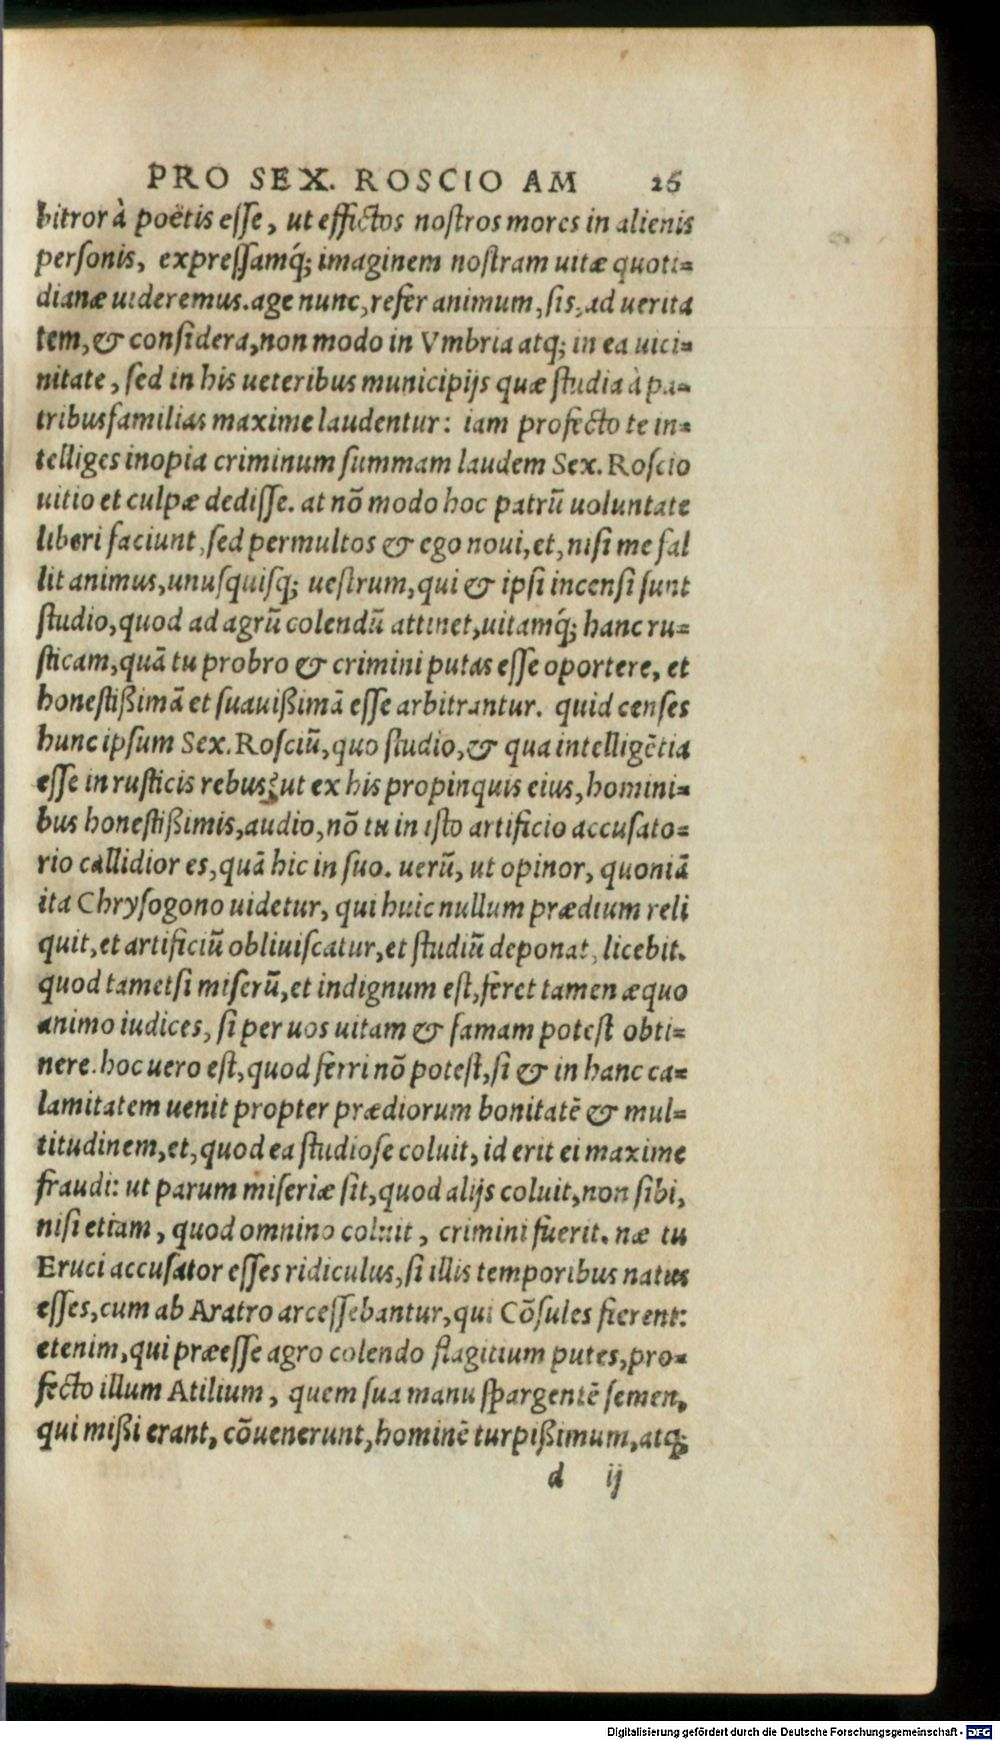 PRO SEX. ROSCIO AM 26
bitror à poëtis esse, ut effictos nostros mores in alienis
personis, expressamq́; imaginem nostram uitæ quoti-
dianæ uideremus. age nunc, refer animum, sis, ad uerita
tem, & considera, non modo in Vmbria atq; in ea uici-
nitate, sed in his ueteribus municipijs quæ studia à pa-
tribusfamilias maxime laudentur: iam profecto te in-
telliges inopia criminum summam laudem Sex. Roscio
uitio et culpæ dedisse. at nõ modo hoc patrũ uoluntate
liberi faciunt, sed permultos & ego noui, et, nisi me fal
lit animus, unusquisq; uestrum, qui & ipsi incensi sunt
studio, quod ad agrũ colendũ attinet, uitamq́; hanc ru-
sticam, quã tu probro & crimini putas esse oportere, et
honestißimã et suauißimã esse arbitrantur. quid censes
hunc ipsum Sex. Rosciũ, quo studio, & qua intelligẽtia
esse in rusticis rebus? ut ex his propinquis eius, homini-
bus honestißimis, audio, nõ tu in isto artificio accusato-
rio callidior es, quã hic in suo. uerũ, ut opinor, quoniã
ita Chrysogono uidetur, qui huic nullum prædium reli
quit, et artificiũ obliuiscatur, et studiũ deponat, licebit.
quod tametsi miserũ, et indignum est, feret tamen æquo
animo iudices, si per uos uitam & famam potest obti-
nere. hoc uero est, quod ferri nõ potest, si & in hanc ca-
lamitatem uenit propter prædiorum bonitatẽ & mul-
titudinem, et, quod ea studiose coluit, id erit ei maxime
fraudi: ut parum miseriæ sit, quod alijs coluit, non sibi,
nisi etiam, quod omnino coluit, crimini fuerit. næ tu
Eruci accusator esses ridiculus, si illis temporibus natus
esses, cum ab Aratro arcessebantur, qui Cõsules fierent:
etenim, qui præesse agro colendo flagitium putes, pro-
fecto illum Atilium, quem sua manu spargentẽ semen,
qui mißi erant, cõuenerunt, hominẽ turpißimum, atq;
d ij
Digitalisierung gefördert durch die Deutsche Forschungsgemeinschaft - DFG